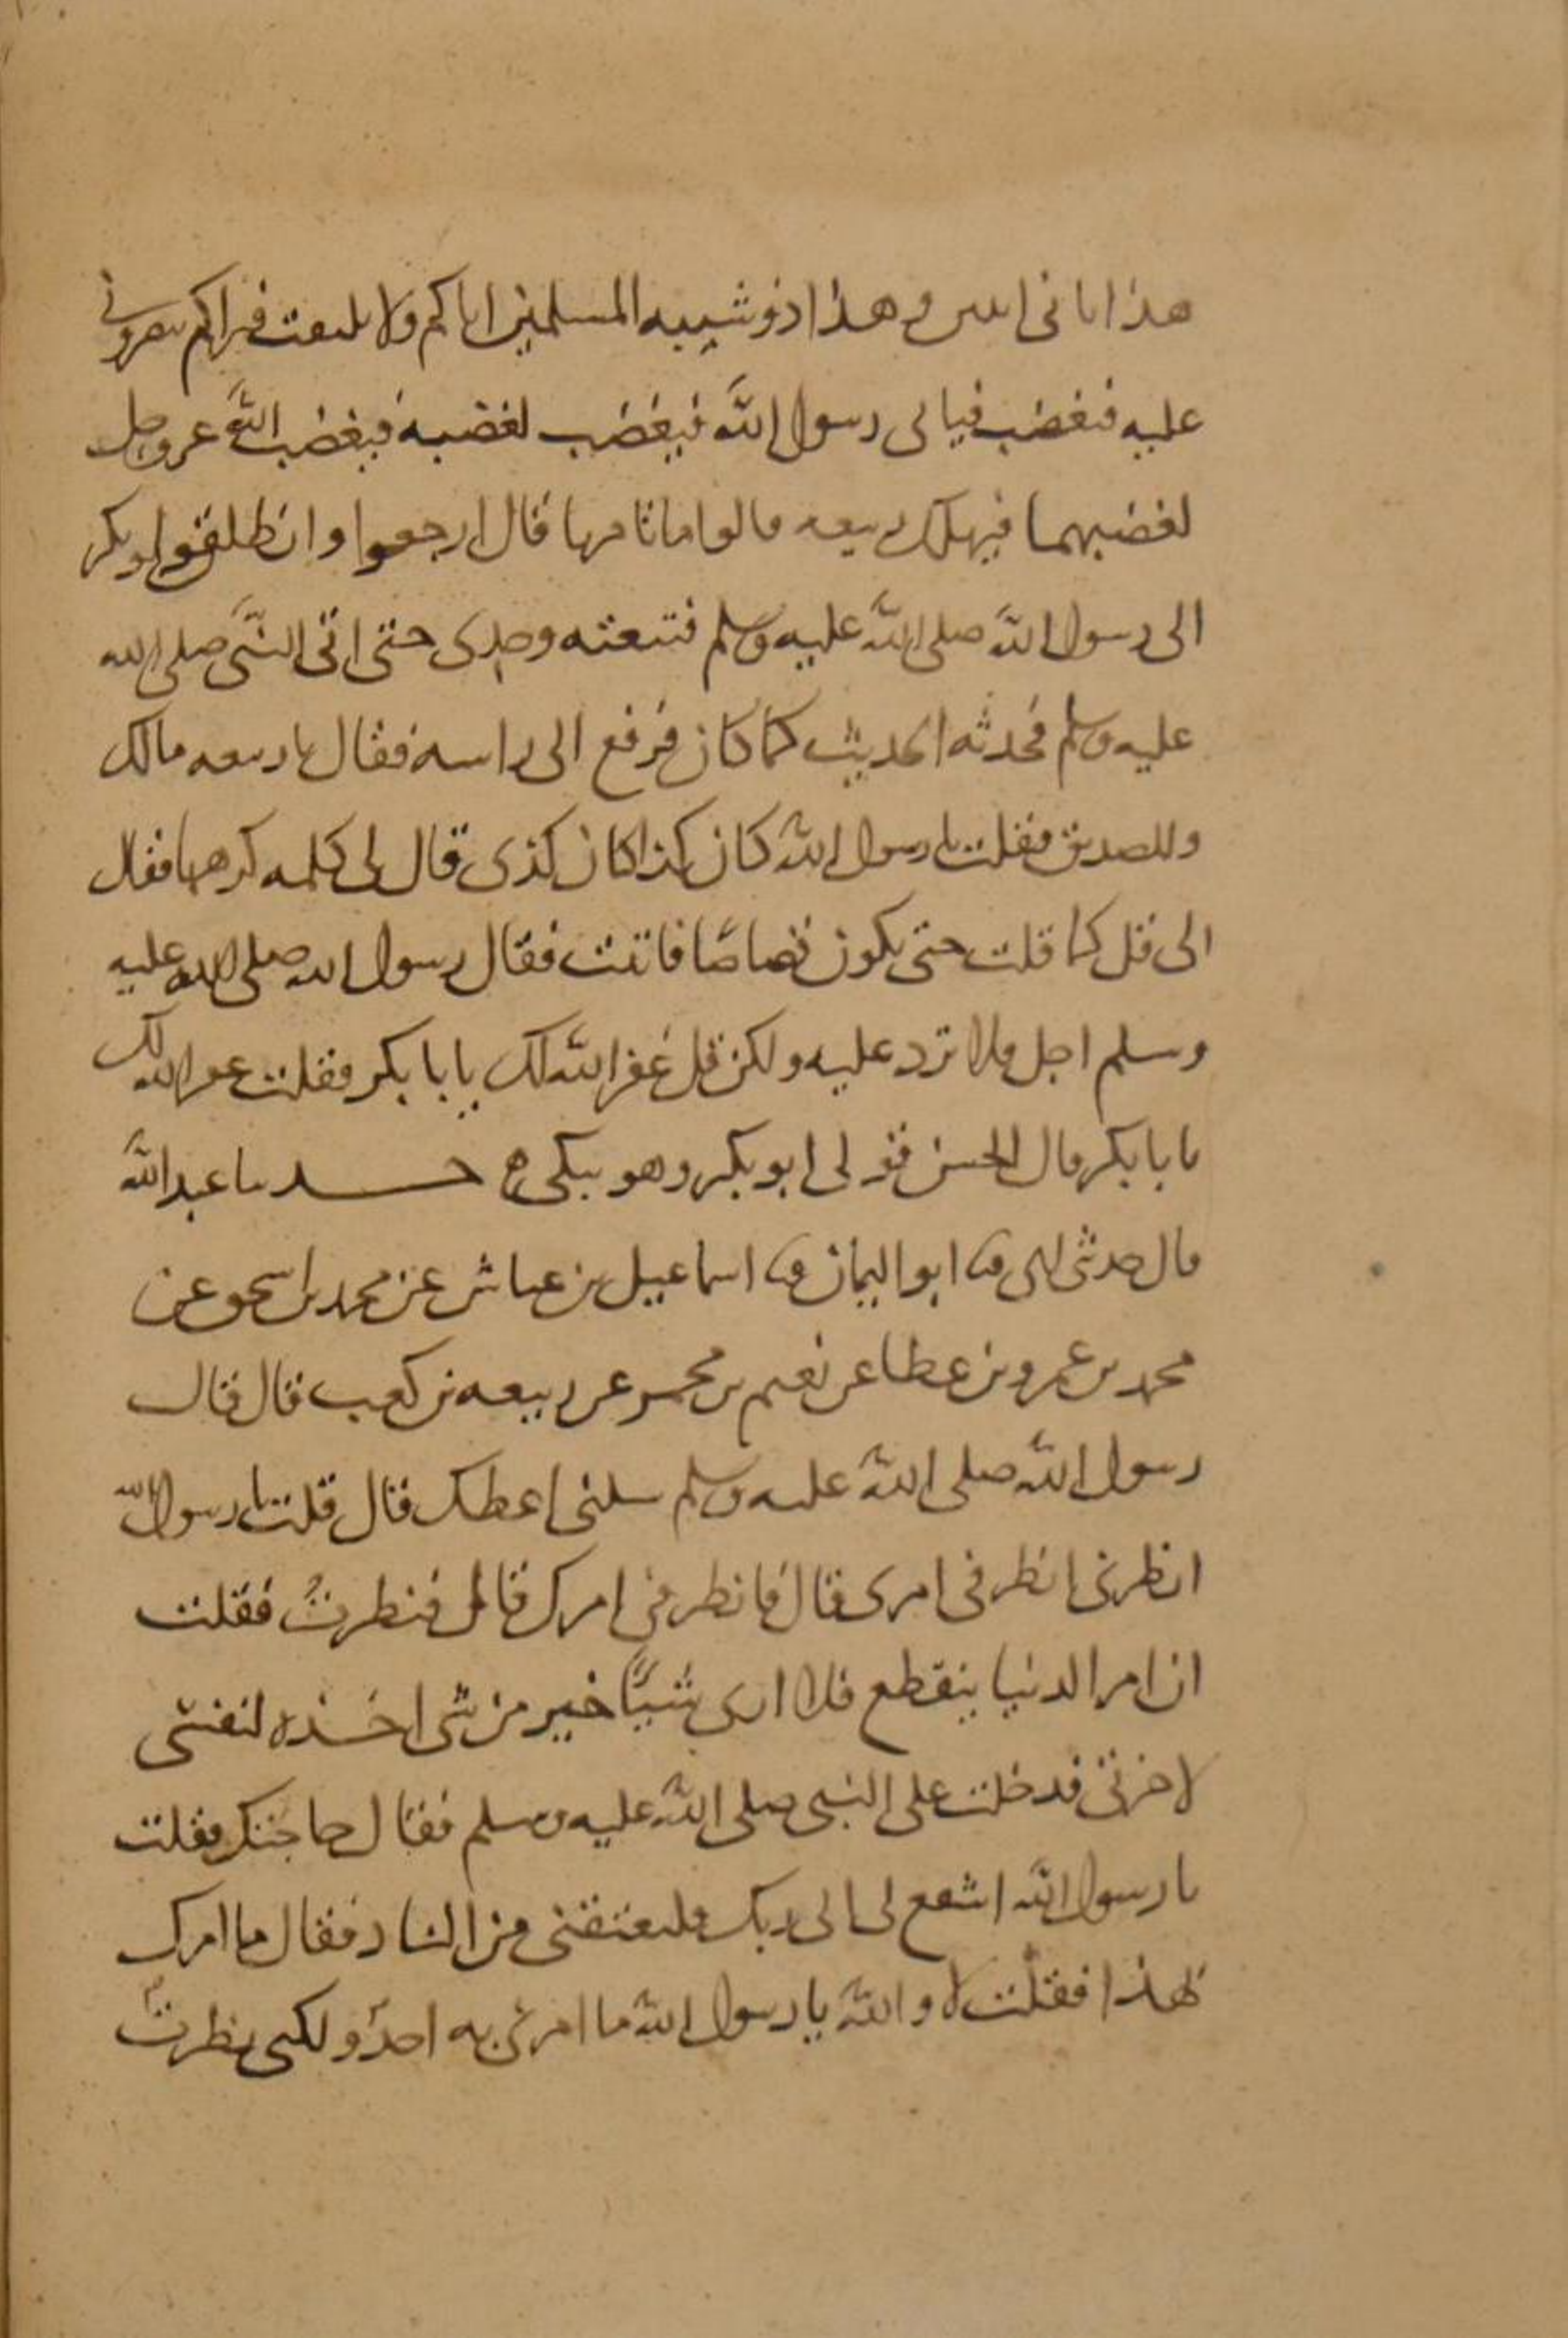 هذا ثانى اثنين وهذا ذو شيبه المسلمين اياكم ولا يلتفت فيراكم تنصرونى
عليه فيغضب فياتى رسول الله فيغضب لغضبه فيغضب الله عز وجل
لغضبهما فيهلك ربيعه قالوا ماتامرنا قال ارجعوا وانطلق ابو بكر
الى رسول الله صلى الله عليه وسلم فتبعته وحدى حتى اتى النبى صلى الله
عليه وسلم فحدثه الحديث كما كان فرفع الى راسه فقال يا ربيعه مالك
وللصديق فقلت يا رسول الله كان كذا كان كذى قال لى كلمه كرهها فقال
لى قل كما قلت حتى يكون قصاصًا فابيت فقال رسول الله صلى الله عليه
وسلم اجل فلا ترد عليه ولكن قل غفر الله لك يا با بكر فقلت غفر الله لك
يا با بكر قال الحسن فولى ابو بكر وهو يبكى ح حدثنا عبد الله
قال حدثنى ابى ثنا ابو اليمان ثنا اسماعيل بن عياش عن محمد بن اسحق عن
محمد بن عمرو بن عطا عن نعيم بن مجمر عن ربيعه بن كعب قال قال
رسول الله صلى الله عليه وسلم سلنى اعطك قال قلت يا رسول الله
انظرنى انظر فى امرى قال فانظر فى امرك قال فنظرت فقلت
ان امر الدنيا ينقطع فلا ارى شيئًا خير من شى اخذه لنفسى
لاخرتى فدخلت على النبى صلى الله عليه وسلم فقال حاجتك فقلت
يا رسول الله اشفع لى الى ربك فليعتقنى من النار فقال ما امرك
بهذا فقلت لا والله يا رسول الله ما امرنى به احد ولكنى نظرت